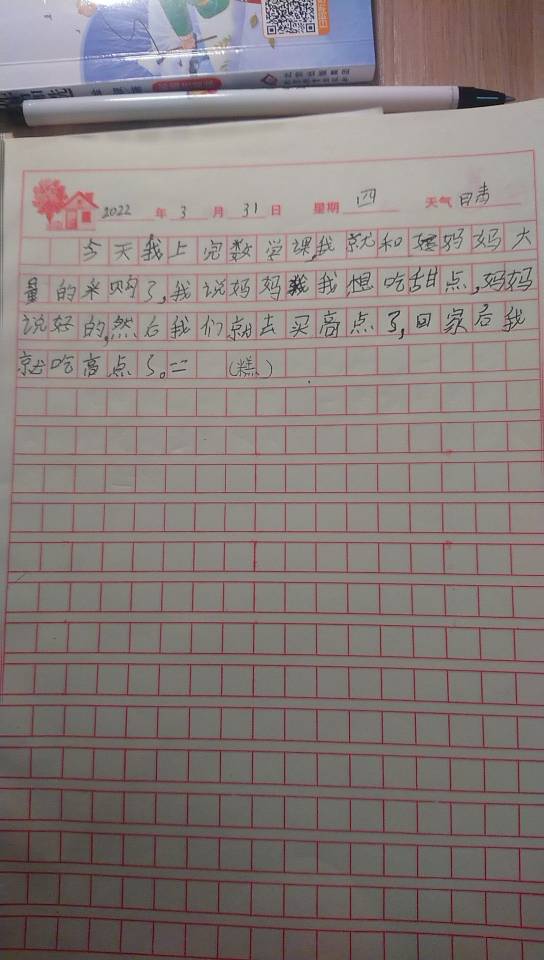 2022 年 3 月 31 日 星期 四 天气 晴
今天我上完数学课,我就和妈妈大
量的米购了,我说妈妈我想吃甜点,妈妈
说好的,然后我们就去买高点了,回家后我
就吃高点了。二 (糕)